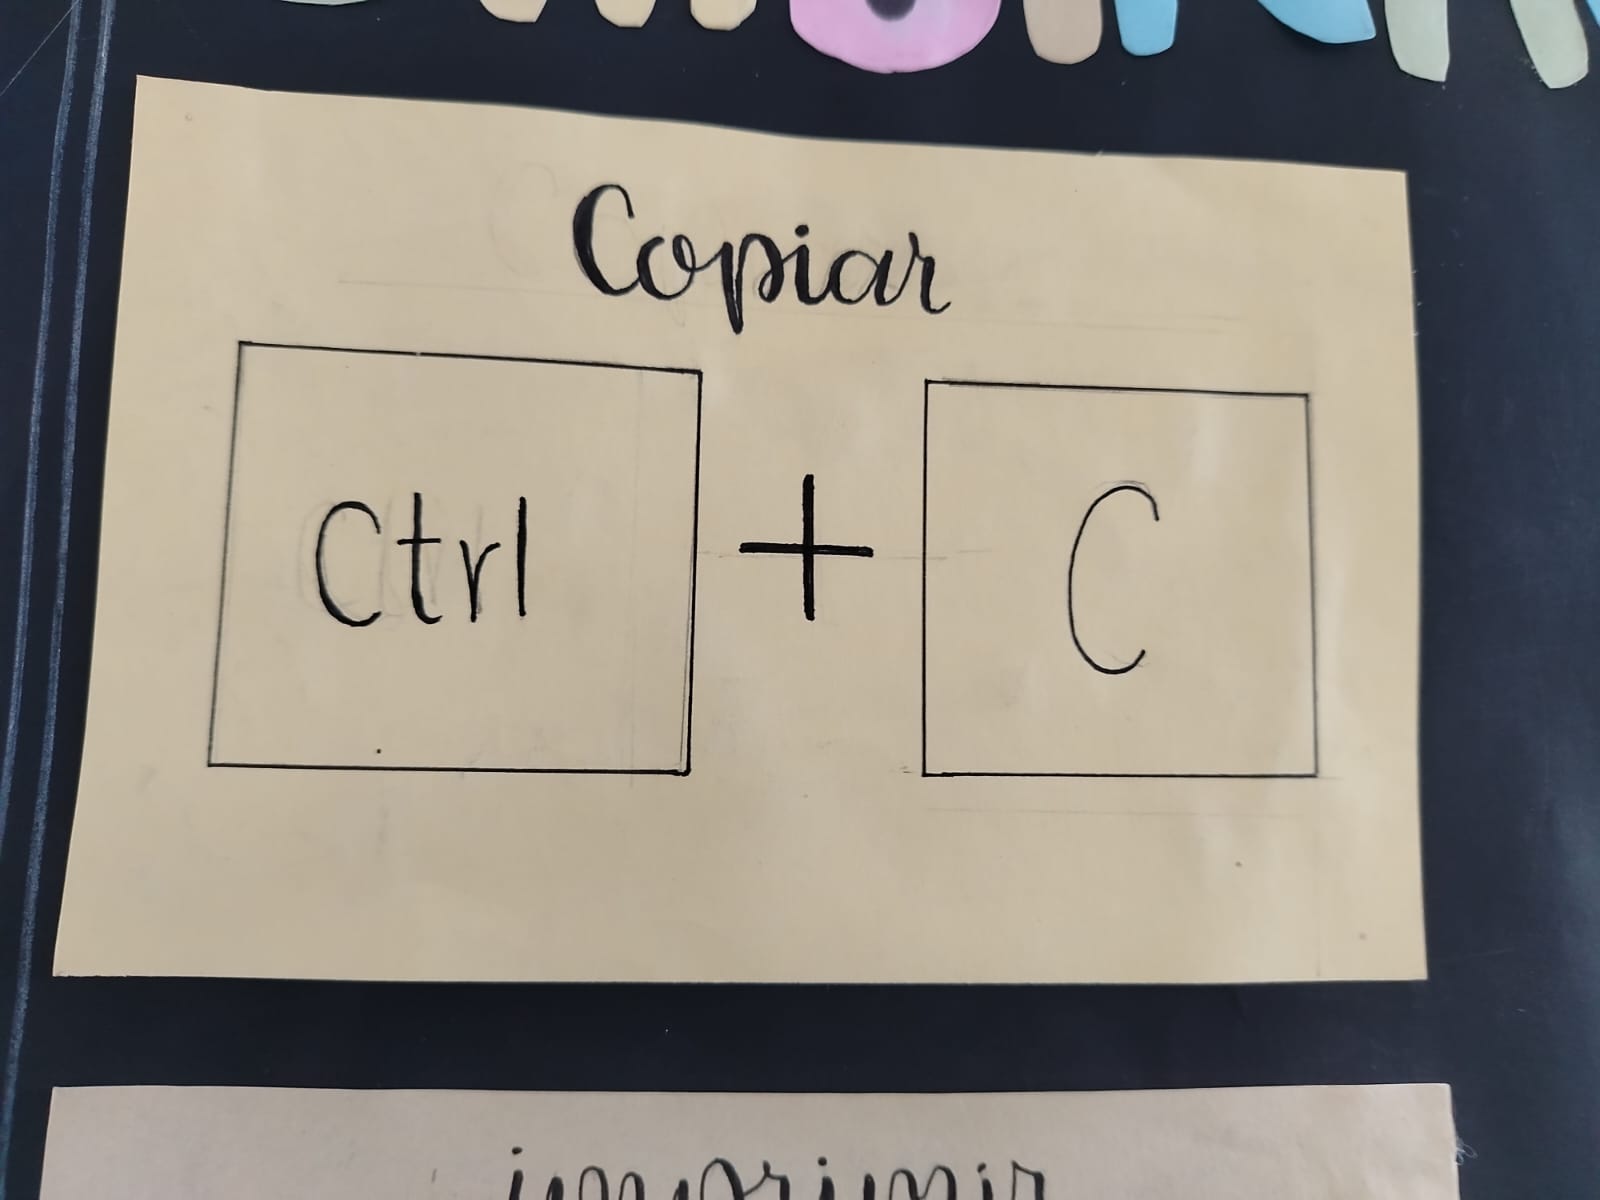 Copiar
Ctrl + C
imprimir